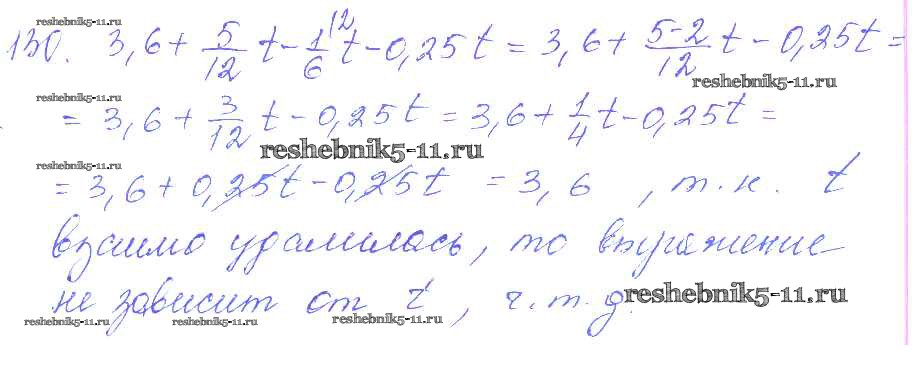 reshebnik5-11.ru
130. 3,6 + 5/12 t - 1/6 t - 0,25 t = 3,6 + 5-2/12 t - 0,25 t =
reshebnik5-11.ru
reshebnik5-11.ru
= 3,6 + 3/12 t - 0,25 t = 3,6 + 1/4 t - 0,25 t =
reshebnik5-11.ru
reshebnik5-11.ru
= 3,6 + 0,25 t - 0,25 t = 3,6 , т.к. t
взаимо удалилась, то выражение
не зависит от t, ч.т.д.
reshebnik5-11.ru
reshebnik5-11.ru reshebnik5-11.ru reshebnik5-11.ru